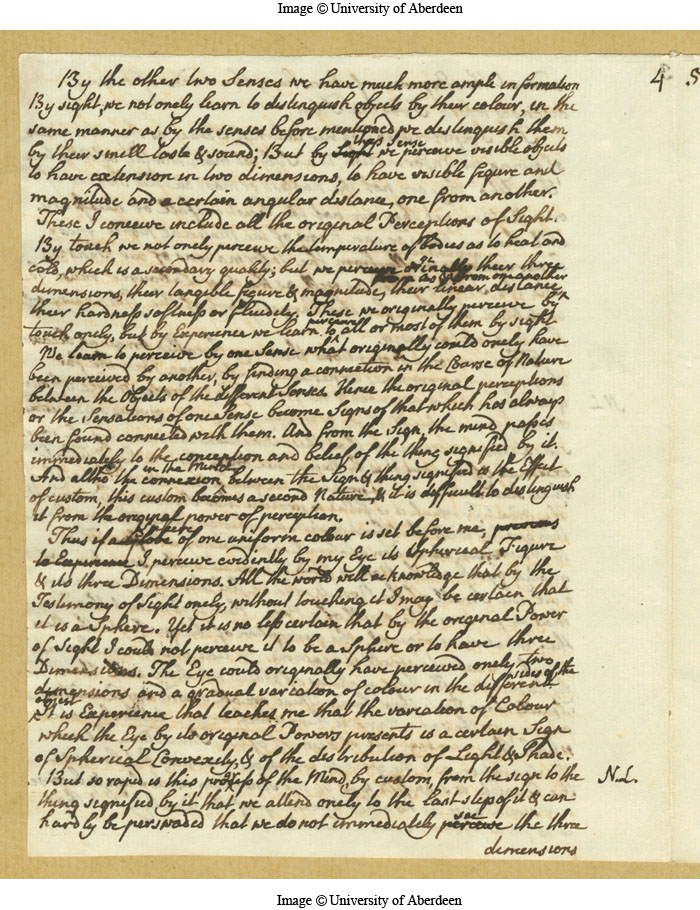 Image © University of Aberdeen
4 5
By the other two Senses we have much more ample information
By sight, we not onely learn to distinguish objects by their colour, in the
same manner as by the senses before mentioned we destinguish them
by their smell taste & sound; But by Sight this Sense we perceive visible objects
to have extension in two dimensions, to have visible figure and
magnitude and a certain angular distane, one from another.
These I conceive include all the original Perceptions of Sight.
By touch we not onely perceive the temperature of bodies as to heat and
cold, which is a secondary quality; but we perceive originally their three
dimensions, their tangible figure & magnitude, their linear distance from one another
their hardness softness or fluidity. These we originally perceive by
touch onely, but by Experience we learn to perceive all or most of them by sight
We learn to perceive by one Sense what originally could onely have
been perceived by another, by finding a connection in the Coarse of Nature
between the Objects of the different Senses. Hence the original perceptions
or the Sensations of one Sense become Signs of that which has always
been found connected with them. And from the Sign, the mind passes
immediately to the conception and belief of the thing signified by it.
And altho the connexion in the Mind between the Sign & thing signified is the Effect
of custom, this custom becomes a second Nature, & it is difficult to destinguish
it from the original power of perception.
Thus if a Globe Sphere of one uniform colour is set before me, previous
to Experience I perceive evidently by my Eye its Spherical Figure
& its three Dimensions. All the world will acknowledge that by the
Testimony of Sight onely, without touching it I may be certain that
it is a Sphere. Yet it is no less certain that by the original Power
of Sight I could not perceive it to be a Sphere or to have three
Dimensions. The Eye could originally have perceived onely two
dimensions and a gradual variation of colour in the different sides of the
object It is Experience that teaches me that the variation of Colour
which the Eye by its original Powers presents is a certain Sign
of Spherical Convexity, & of the distribution of Light & Shade.
But so rapid is this progress of the Mind, by custom, from the sign to the
thing signified by it that we attend onely to the last step of it & can
hardly be perswaded that we do not immediately perceive see the three
dimensions
N.L.
Image © University of Aberdeen